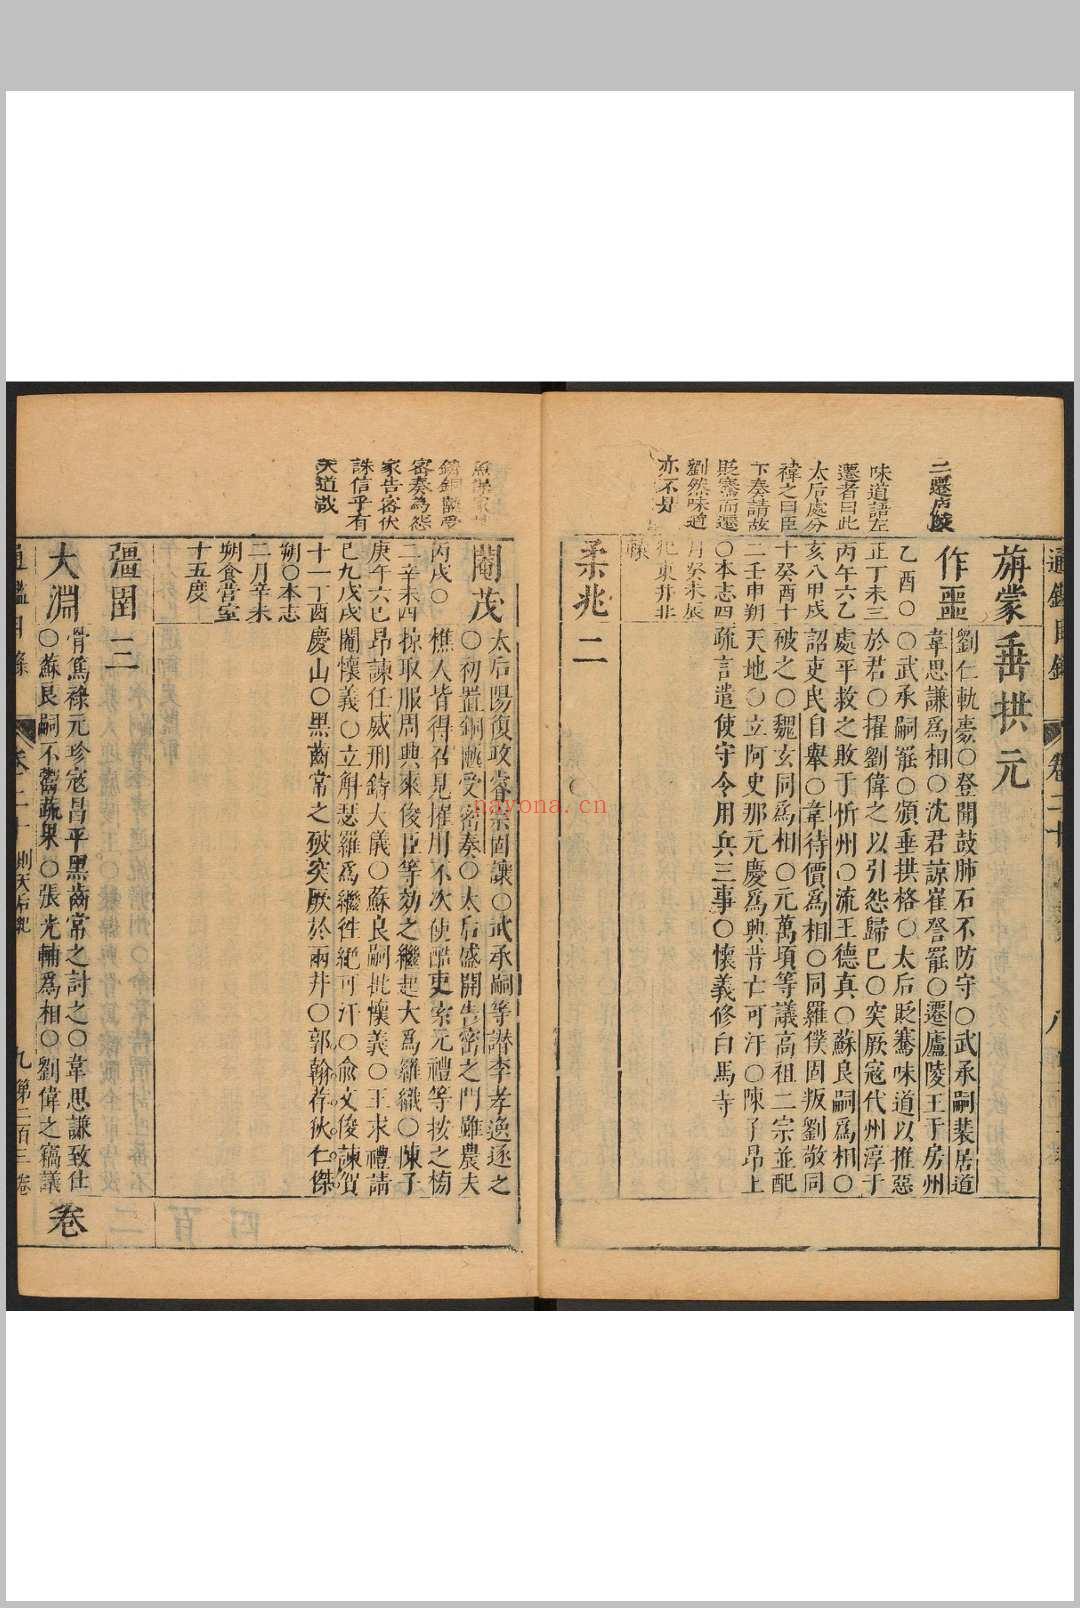 通鑑目錄
旃蒙
作噩
垂拱元
二遷房陵
味道語左
遷者曰此
太后處分
禕之曰臣
下奏請故
貶騫而遷
劉然味道
亦不久
乙酉〇
正丁未三
丙午六乙
亥八甲戌
十癸酉十
二壬申朔
〇本志四
月癸未辰
犯東井北
轅
劉仁軌薨〇登聞鼓肺石不防守〇武承嗣裴居道
韋思謙爲相〇沈君諒崔詧罷〇遷廬陵王于房州
〇武承嗣罷〇頒垂拱格〇太后貶騫味道以推惡
於君〇擢劉偉之以引怨歸巳〇突厥寇代州淳于
處平救之敗于忻州〇流王德真〇蘇良嗣爲相〇
詔吏民自舉〇韋待價爲相〇同羅僕固叛劉敬同
破之〇魏玄同爲相〇元萬頃等議高祖二宗並配
天地〇立阿史那元慶爲興昔亡可汗〇陳子昂上
疏言遣使守令用兵三事〇懷義修白馬寺
柔兆二
閹茂
密奏為怨
家告密伏
誅信乎有
天道哉
丙戌〇
二辛未四
庚午六巳
巳九戊戌
十一丁酉
朔〇本志
二月辛未
朔食營室
十五度
太后陽復政睿宗固讓〇武承嗣等譖李孝逸逐之
〇初置銅匭受密奏〇太后盛開告密之門雖農夫
樵人皆得召見擢用不次使酷吏索元禮等按之榜
掠取服周興來俊臣等効之繼起大爲羅織〇陳子
昂諫任威刑鋳大儀〇蘇良嗣批懷義〇王求禮請
閹懷義〇立斛瑟羅爲繼徃絶可汗〇俞文俊諫賀
慶山〇黑齒常之破突厥於兩井〇郭翰荐狄仁傑
彊圉三
大淵
骨篤祿元珍寇昌平黑齒常之討之〇韋思謙致仕
〇蘇良嗣不鬻蔬果〇張光輔爲相〇劉偉之竊議
卷二十
則天后紀
九
第二百三卷